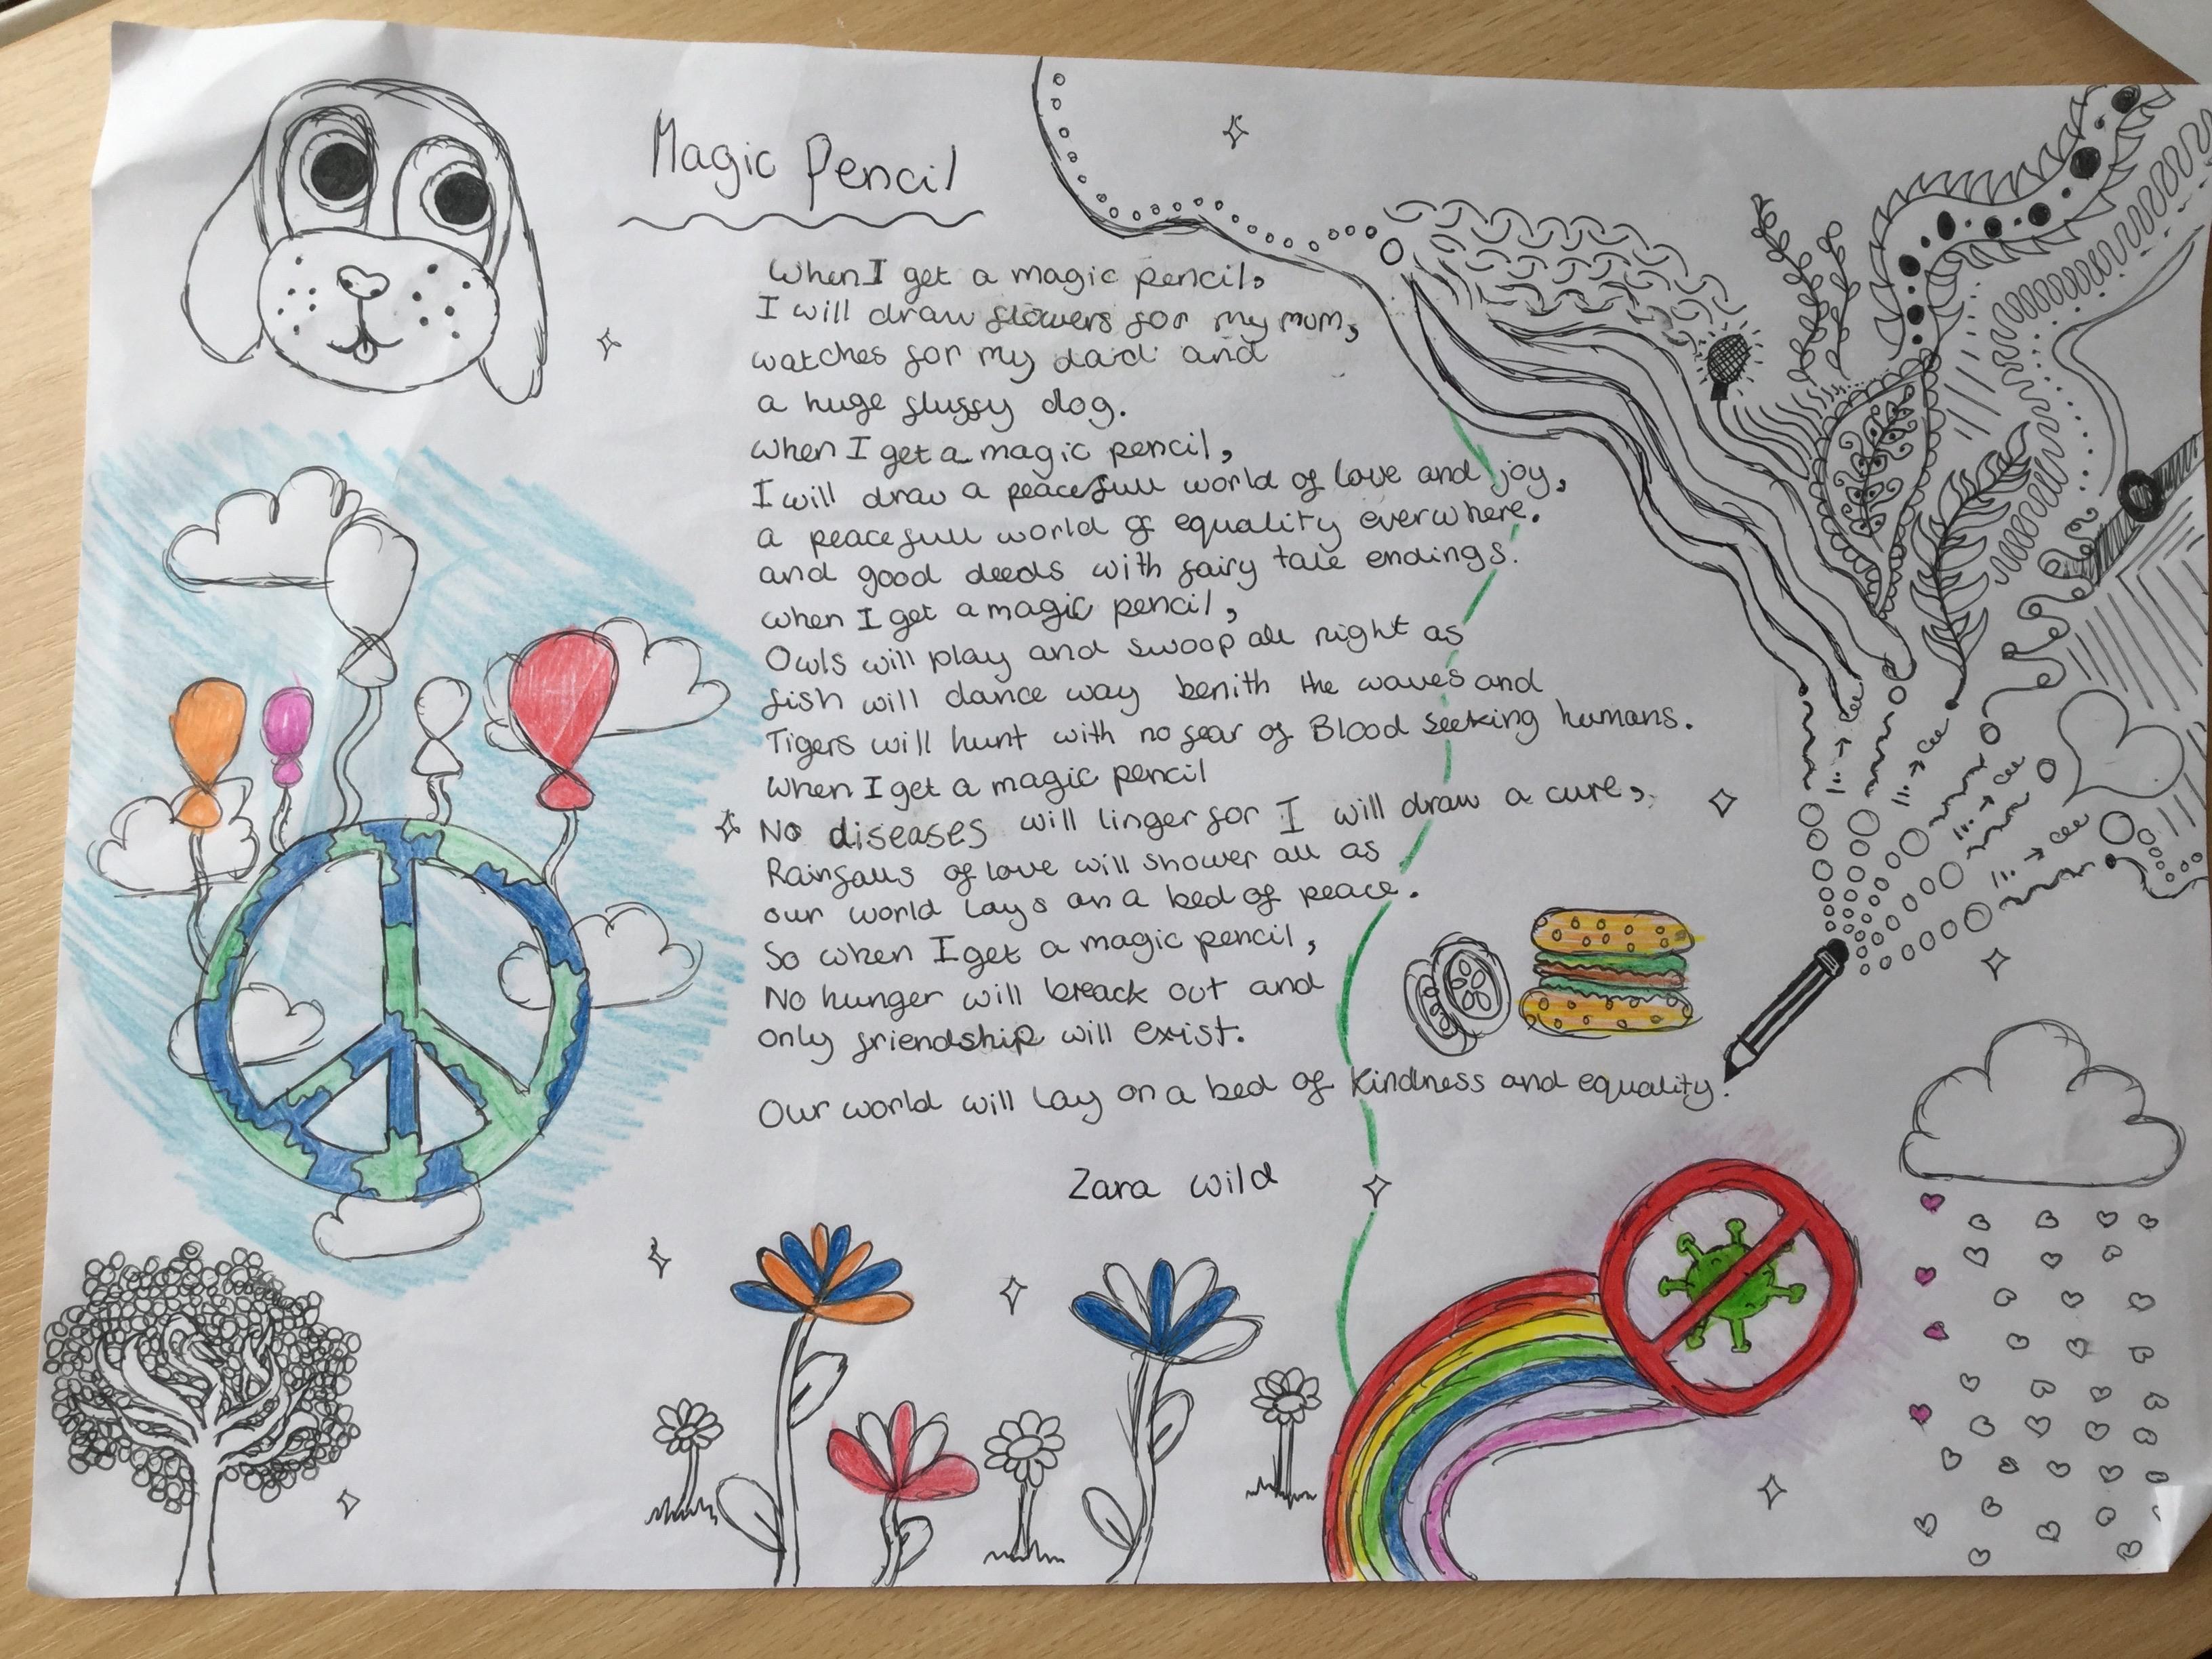 Magic Pencil
When I get a magic pencil,
I will draw flowers for my mum,
watches for my dad and
a huge fluffy dog.
When I get a magic pencil,
I will draw a peacefull world of love and joy,
a peacefull world of equality everwhere.
and good deeds with fairy tale endings.
when I get a magic pencil,
Owls will play and swoop all night as
fish will dance way benith the waves and
Tigers will hunt with no fear of Blood seeking humans.
When I get a magic pencil
No diseases will linger for I will draw a cure,
Rainfalls of love will shower all as
our world lays on a bed of peace.
So when I get a magic pencil,
No hunger will breack out and
only friendship will exist.
Our world will lay on a bed of kindness and equality.
Zara Wild